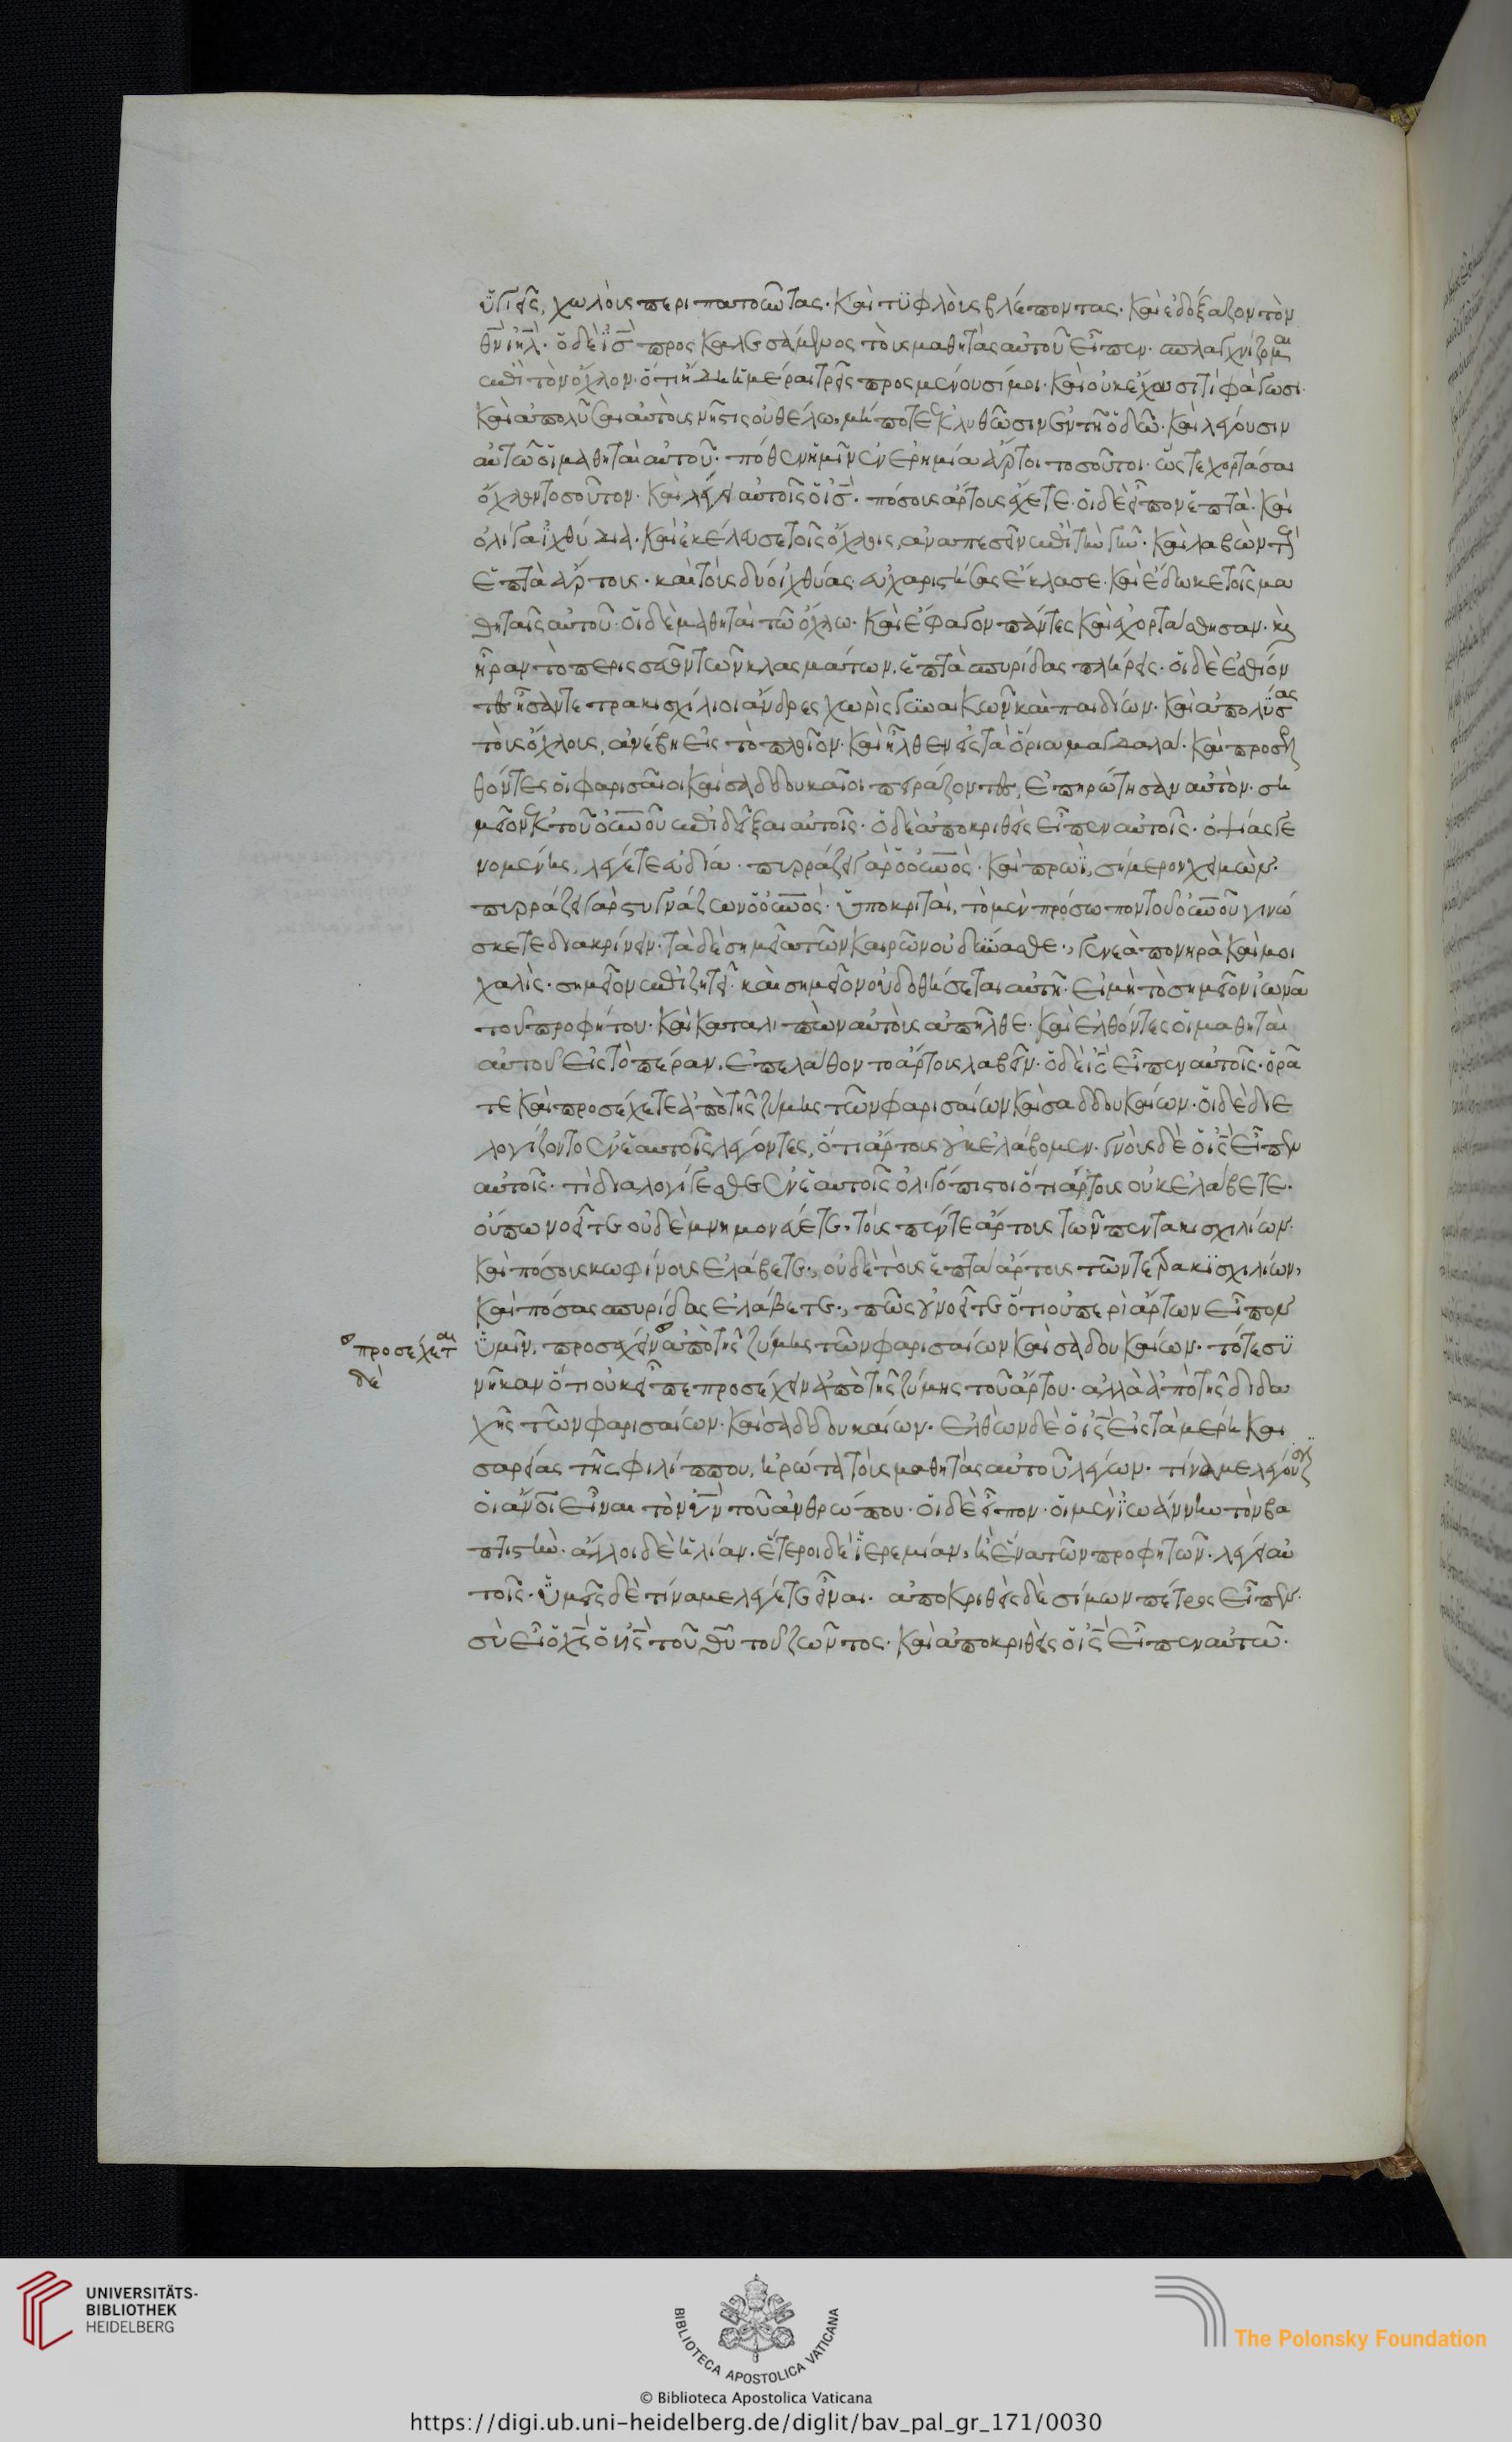 ὑγιεῖς, χωλοὺς περιπατοῦντας. καὶ τυφλοὺς βλέποντας. καὶ ἐδόξαζον τὸν
θν ιηλ. ὁ δὲ ις προσκαλεσάμενος τοὺς μαθητὰς αὐτοῦ εἶπεν. σπλαγχνίζομαι
ἐπὶ τὸν ὄχλον. ὅτι ἤδη ἡμέραι τρεῖς προσμένουσί μοι. καὶ οὐκ ἔχουσι τί φάγωσι.
καὶ ἀπολῦσαι αὐτοὺς νήστις οὐ θέλω. μήποτε ἐκλυθῶσιν ἐν τῇ ὁδῶ. καὶ λέγουσιν
αὐτῶ οἱ μαθηταὶ αὐτοῦ. πόθεν ἡμῖν ἐν ἐρημία ἄρτοι τοσοῦτοι. ὥστε χορτάσαι
ὄχλον τοσοῦτον. καὶ λέγει αὐτοῖς ὁ ις. πόσους ἄρτους ἔχετε. οἱ δὲ εἶπον ἑπτὰ. καὶ
ὀλίγα ἰχθύδια. καὶ ἐκέλευσε τοῖς ὄχλοις, ἀναπεσεῖν ἐπὶ τὴν γῆν. καὶ λαβὼν τοὺς
ἑπτὰ ἄρτους. καὶ τοὺς δύο ἰχθύας εὐχαριστήσας ἔκλασε. καὶ ἔδωκε τοῖς μα
θηταῖς αὐτοῦ. οἱ δὲ μαθηταὶ τῶ ὄχλω. καὶ ἔφαγον πάντες καὶ ἐχορτάσθησαν. καὶ
ἦραν τὸ περισσεῦον τῶν κλασμάτων. ἑπτὰ σπυρίδας πλήρεις. οἱ δὲ ἐσθίον
τες ἦσαν τετρακισχίλιοι ἄνδρες χωρὶς γυναικῶν καὶ παιδίων. καὶ ἀπολύσας
τοὺς ὄχλους, ἀνέβη εἰς τὸ πλοῖον. καὶ ἦλθεν εἰς τὰ ὅρια μαγδαλά. καὶ προσελ
θόντες οἱ φαρισαῖοι καὶ σαδδουκαῖοι πειράζοντες, ἐπηρώτησαν αὐτὸν. ση
μεῖον ἐκ τοῦ οὐνοῦ ἐπιδεῖξαι αὐτοῖς. ὁ δὲ ἀποκριθεὶς εἶπεν αὐτοῖς. ὀψίας γε
νομένης, λέγετε εὐδία. πυρράζει γὰρ ὁ οὐνος. καὶ πρωῒ, σήμερον χειμών.
πυρράζει γὰρ στυγνάζων ὁ οὐνος. ὑποκριταὶ, τὸ μὲν πρόσωπον τοῦ οὐνοῦ γινώ
σκετε διακρίνειν. τὰ δὲ σημεῖα τῶν καιρῶν οὐ δύνασθε., γενεὰ πονηρὰ καὶ μοι
χαλὶς. σημεῖον ἐπιζητεῖ. καὶ σημεῖον οὐ δοθήσεται αὐτῇ. εἰ μὴ τὸ σημεῖον ἰωνᾶ
τοῦ προφήτου. καὶ καταλιπὼν αὐτοὺς ἀπῆλθε. καὶ ἐλθόντες οἱ μαθηταὶ
αὐτοῦ εἰς τὸ πέραν. ἐπελάθοντο ἄρτους λαβεῖν. ὁ δὲ ις εἶπεν αὐτοῖς. ὁρᾶ
τε καὶ προσέχετε ἀπὸ τῆς ζύμης τῶν φαρισαίων καὶ σαδδουκαίων. οἱ δὲ διε
λογίζοντο ἐν ἑαυτοῖς λέγοντες, ὅτι ἄρτους οὐκ ἐλάβομεν. γνοὺς δὲ ὁ ις εἶπεν
αὐτοῖς. τί διαλογίζεσθε ἐν ἑαυτοῖς ὀλιγόπιστοι ὅτι ἄρτους οὐκ ἐλάβετε.
οὔπω νοεῖτε οὐδὲ μνημονεύετε, τοὺς πέντε ἄρτους τῶν πεντακισχιλίων.
καὶ πόσους κωφίνους ἐλάβετε., οὐδὲ τοὺς ἑπτὰ ἄρτους τῶν τετρακισχιλίων,
καὶ πόσας σπυρίδας ἐλάβετε., πῶς οὐ νοεῖτε ὅτι οὐ περὶ ἄρτων εἶπον
ὑμῖν. προσέχειν ἀπὸ τῆς ζύμης τῶν φαρισαίων καὶ σαδουκαίων. τότε συ
προσέχετε
δὲ
νῆκαν ὅτι οὐκ εἶπε προσέχειν ἀπὸ τῆς ζύμης τοῦ ἄρτου. ἀλλὰ ἀπὸ τῆς διδα
χῆς τῶν φαρισαίων. καὶ σαδδουκαίων. ἐλθὼν δὲ ὁ ις εἰς τὰ μέρη και
σαρείας τῆς φιλίππου, ἠρώτα τοὺς μαθητὰς αὐτοῦ λέγων. τίνα με λέγουσιν
οἱ ἄνοι εἶναι τὸν υν τοῦ ἀνθρώπου. οἱ δὲ εἶπον. οἱ μὲν ἰωάννην τὸν βα
πτιστὴν. ἄλλοι δὲ ἡλίαν. ἕτεροι δὲ ἱερεμίαν, ἢ ἕνα τῶν προφητῶν. λέγει αὐ
τοῖς. ὑμεῖς δὲ τίνα με λέγετε εἶναι. ἀποκριθεὶς δὲ σίμων πέτρος εἶπεν.
σὺ εἶ ὁ χς ὁ υς τοῦ θυ τοῦ ζῶντος. καὶ ἀποκριθεὶς ὁ ις εἶπεν αὐτῶ.
UNIVERSITÄTS-
BIBLIOTHEK
HEIDELBERG
BIBLIOTECA APOSTOLICA VATICANA
The Polonsky Foundation
© Biblioteca Apostolica Vaticana
https://digi.ub.uni-heidelberg.de/diglit/bav_pal_gr_171/0030